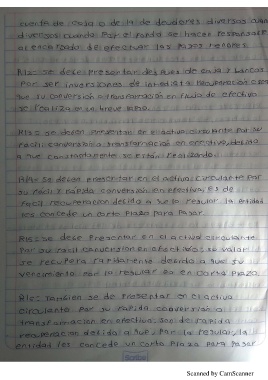 cuenta de caja o de la de deudores diversos o
diversos cuando por el fondo se hacer responsable
al encargado de efectuar los pagos menores.
R15: se debe presentar después de caja y bancos
Por ser inversiones de inmediata recuperación
que su conversión o transformación en efectivo
se realiza en breve
R16: se deben presentar en el activo circulante Por su
fácil conversión o transformación en efectivo, debido
a que constantemente se están realizando.
se deben presentar en el activo circulante Por
su fácil y rápida conversión en efectivo, es de
fácil recuperación debido a que Por lo regular la entidad
los concede un corto Plazo para Pagar.
se debe Presentar en el activo circulante
Por su fácil conversión en efectivo, su valor
se recupera rápidamente debido a que su
vencimiento Por lo regular es en corto Plazo.
También se de Presentar en el activo
circulante Por su rápida conversión o
transformación en efectivo, son de rápida
recuperación debido a que, Por lo regular, la
entidad les concede un corto Plazo Para Pagar
Scanned by CamScanner